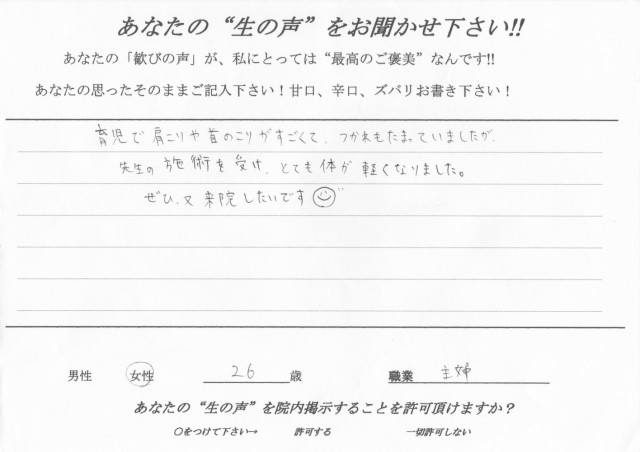 あなたの“生の声”をお聞かせ下さい!!
あなたの「歓びの声」が、私にとっては“最高のご褒美”なんです!!
あなたの思ったそのままご記入下さい！甘口、辛口、ズバリお書き下さい！
育児で肩こりや首のこりがすごくて、つかれもたまっていましたが、
先生の施術を受け、とても体が軽くなりました。
ぜひ、又来院したいです
男性 女性 26歳 職業 主婦
あなたの“生の声”を院内掲示することを許可頂けますか？
○をつけて下さい→ 許可する 一切許可しない